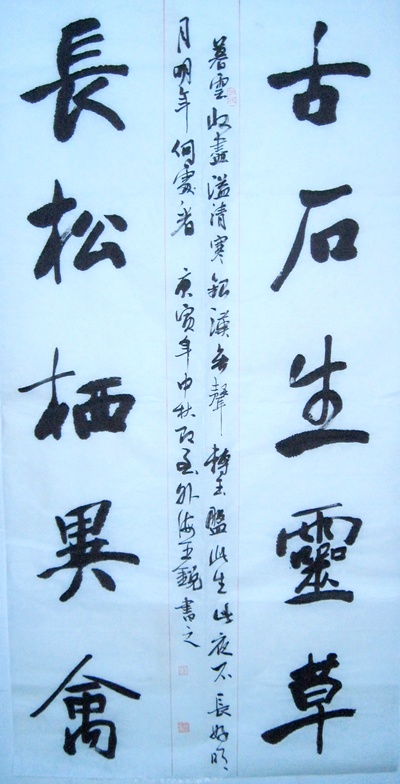 古石生靈草
暮雲收盡溢清寒銀漢無聲轉玉盤此生此夜不長好明
月明年何處看 庚寅年中秋 外海王銳書之
長松栖異禽